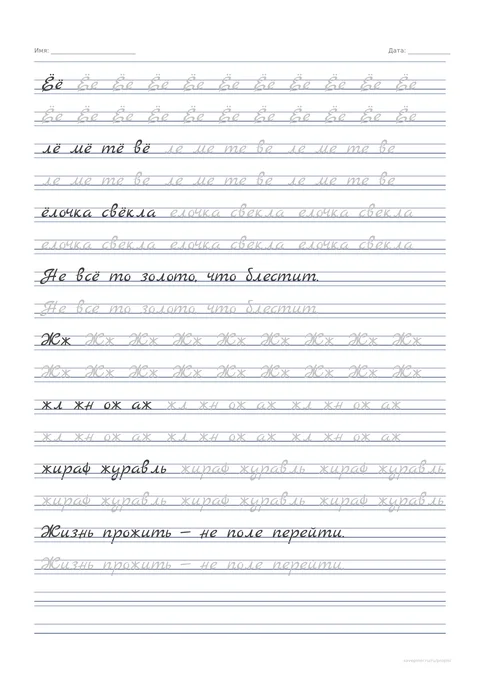 Имя: Дата:
Ёё Ёе Ёе Ёе Ёе Ёе Ёе Ёе Ёе Ёе Ёе
Ёе Ёе Ёе Ёе Ёе Ёе Ёе Ёе Ёе Ёе
лё мё тё вё ле ме те ве ле ме те ве
ле ме те ве ле ме те ве ле ме те ве
ёлочка свёкла елочка свекла елочка свекла
елочка свекла елочка свекла елочка свекла
Не всё то золото, что блестит.
Не все то золото что блестит
Жж Жж Жж Жж Жж Жж Жж Жж Жж
Жж Жж Жж Жж Жж Жж Жж Жж Жж
жл жн ож аж жл жн ож аж жл жн ож аж
жл жн ож аж жл жн ож аж жл жн ож аж
жираф журавль жираф журавль жираф журавль
жираф журавль жираф журавль жираф журавль
Жизнь прожить — не поле перейти.
Жизнь прожить — не поле перейти.